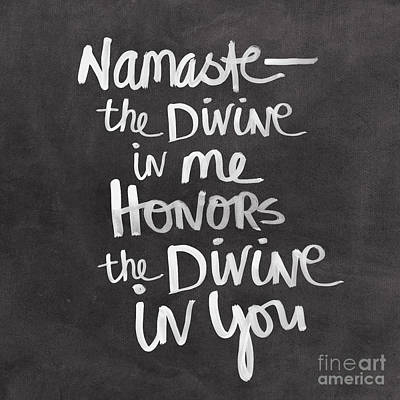 Namaste—
the DiViNE
in me
HONORS
the DiViNE
iN You
fineart
america